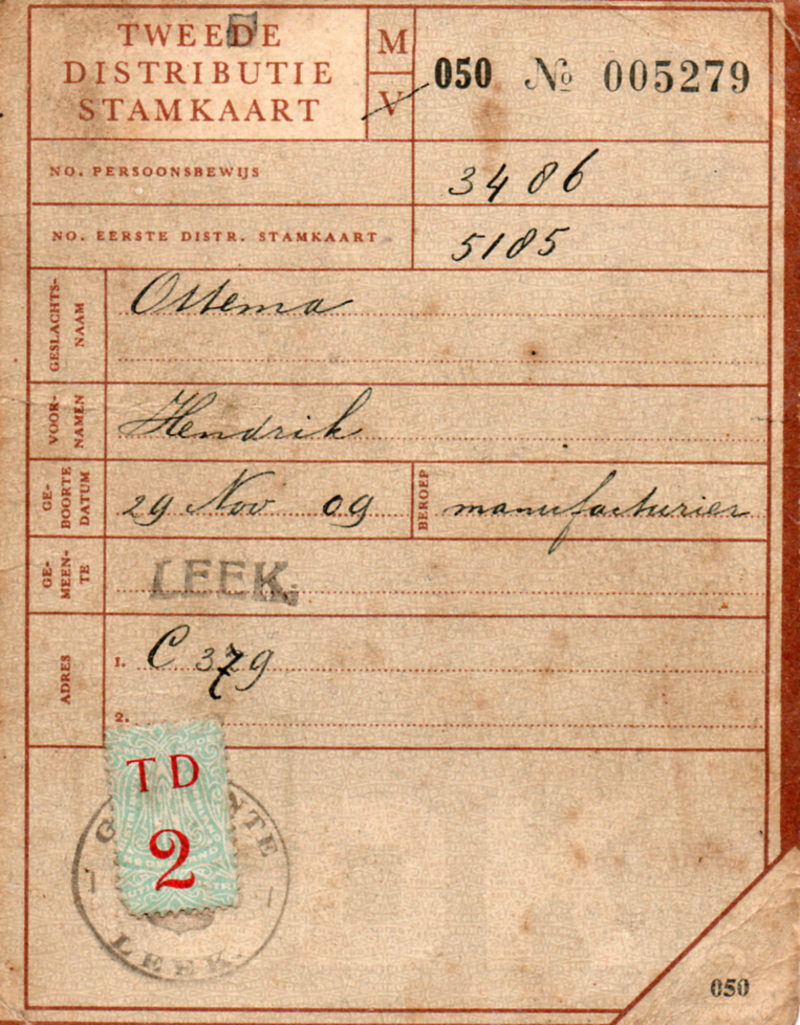 TWEEDE
DISTRIBUTIE
STAMKAART
M
V
050 № 005279
NO. PERSOONSBEWIJS
3486
NO. EERSTE DISTR. STAMKAART
5185
GESLACHTS-
NAAM
Ostema
VOOR-
NAMEN
Hendrik
GE-
BOORTE
DATUM
29 Nov 09
BEROEP
manufacturier
GE-
MEEN-
TE
LEEK.
ADRES
1. C 379
2.
TD
2
LEEK.
050